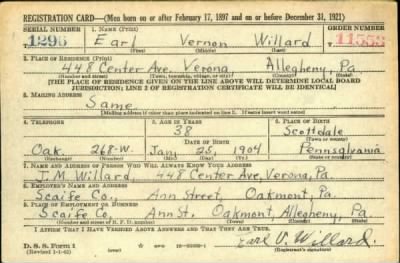 REGISTRATION CARD—(Men born on or after February 17, 1897 and on or before December 31, 1921)
SERIAL NUMBER 1. NAME (Print) ORDER NUMBER
1296 Earl Vernon Willard 11553
(First) (Middle) (Last)
2. PLACE OF RESIDENCE (Print)
448 Center Ave, Verona Allegheny, Pa
(Number and street) (Town, township, village, or city) (County) (State)
[THE PLACE OF RESIDENCE GIVEN ON THE LINE ABOVE WILL DETERMINE LOCAL BOARD
JURISDICTION; LINE 2 OF REGISTRATION CERTIFICATE WILL BE IDENTICAL]
3. MAILING ADDRESS
Same
[Mailing address if other than place indicated on line 2. If same insert word same]
4. TELEPHONE 5. AGE IN YEARS 6. PLACE OF BIRTH
38 Scottdale
DATE OF BIRTH (Town or county)
Oak. 268-W. Jan. 25, 1904 Pennsylvania
(Exchange) (Number) (Mo.) (Day) (Yr.) (State or country)
7. NAME AND ADDRESS OF PERSON WHO WILL ALWAYS KNOW YOUR ADDRESS
J. M. Willard, 448 Center Ave, Verona, Pa.
8. EMPLOYER'S NAME AND ADDRESS
Scaife Co., Ann Street, Oakmont, Pa.
9. PLACE OF EMPLOYMENT OR BUSINESS
Scaife Co. Ann St. Oakmont, Allegheny, Pa
(Number and street or R. F. D. number) (Town) (County) (State)
I AFFIRM THAT I HAVE VERIFIED ABOVE ANSWERS AND THAT THEY ARE TRUE.
D. S. S. Form 1
(Revised 1-1-42) Earl V. Willard.